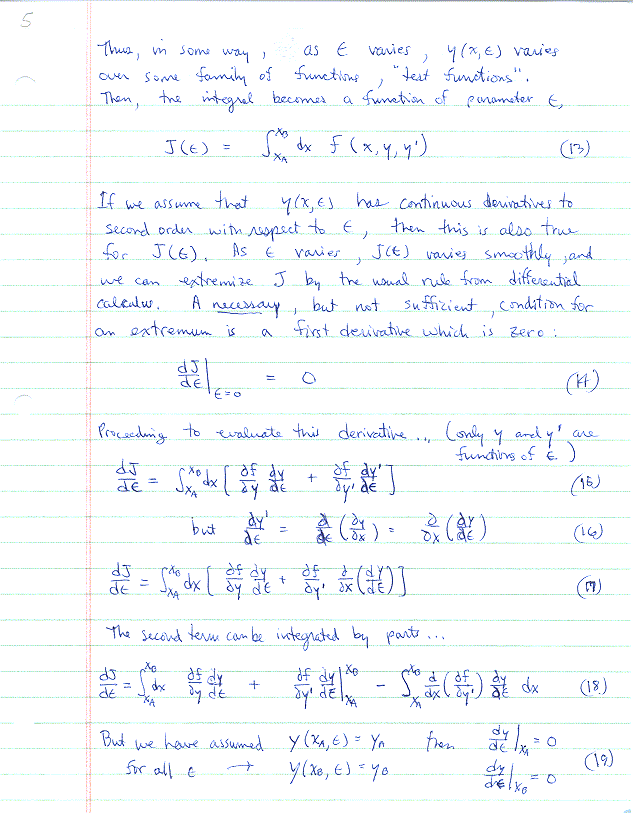 5
Thus, in some way, as ϵ varies, y(x,ϵ) varies
over some family of functions, "test functions".
Then, the integral becomes a function of parameter ϵ,
J(ϵ) = ∫_{x_A}^{x_B} dx f(x,y,y') (13)
If we assume that y(x,ϵ) has continuous derivatives to
second order with respect to ϵ, then this is also true
for J(ϵ). As ϵ varies, J(ϵ) varies smoothly, and
we can extremize J by the usual rule from differential
calculus. A necessary, but not sufficient, condition for
an extremum is a first derivative which is zero:
dJ/dϵ |_{ϵ=0} = 0 (14)
Proceeding to evaluate this derivative... (only y and y' are
functions of ϵ.)
dJ/dϵ = ∫_{x_A}^{x_B} dx [ ∂f/∂y dy/dϵ + ∂f/∂y' dy'/dϵ ] (15)
but dy'/dϵ = d/dϵ (∂y/∂x) = ∂/∂x (dy/dϵ) (16)
dJ/dϵ = ∫_{x_A}^{x_B} dx [ ∂f/∂y dy/dϵ + ∂f/∂y' ∂/∂x (dy/dϵ) ] (17)
The second term can be integrated by parts...
dJ/dϵ = ∫_{x_A}^{x_B} dx ∂f/∂y dy/dϵ + ∂f/∂y' dy/dϵ |_{x_A}^{x_B} − ∫_{x_A}^{x_B} d/dx (∂f/∂y') dy/dϵ dx (18)
But we have assumed y(x_A,ϵ) = y_A then dy/dϵ |_{x_A} = 0
for all ϵ → y(x_B,ϵ) = y_B dy/dϵ |_{x_B} = 0 (19)